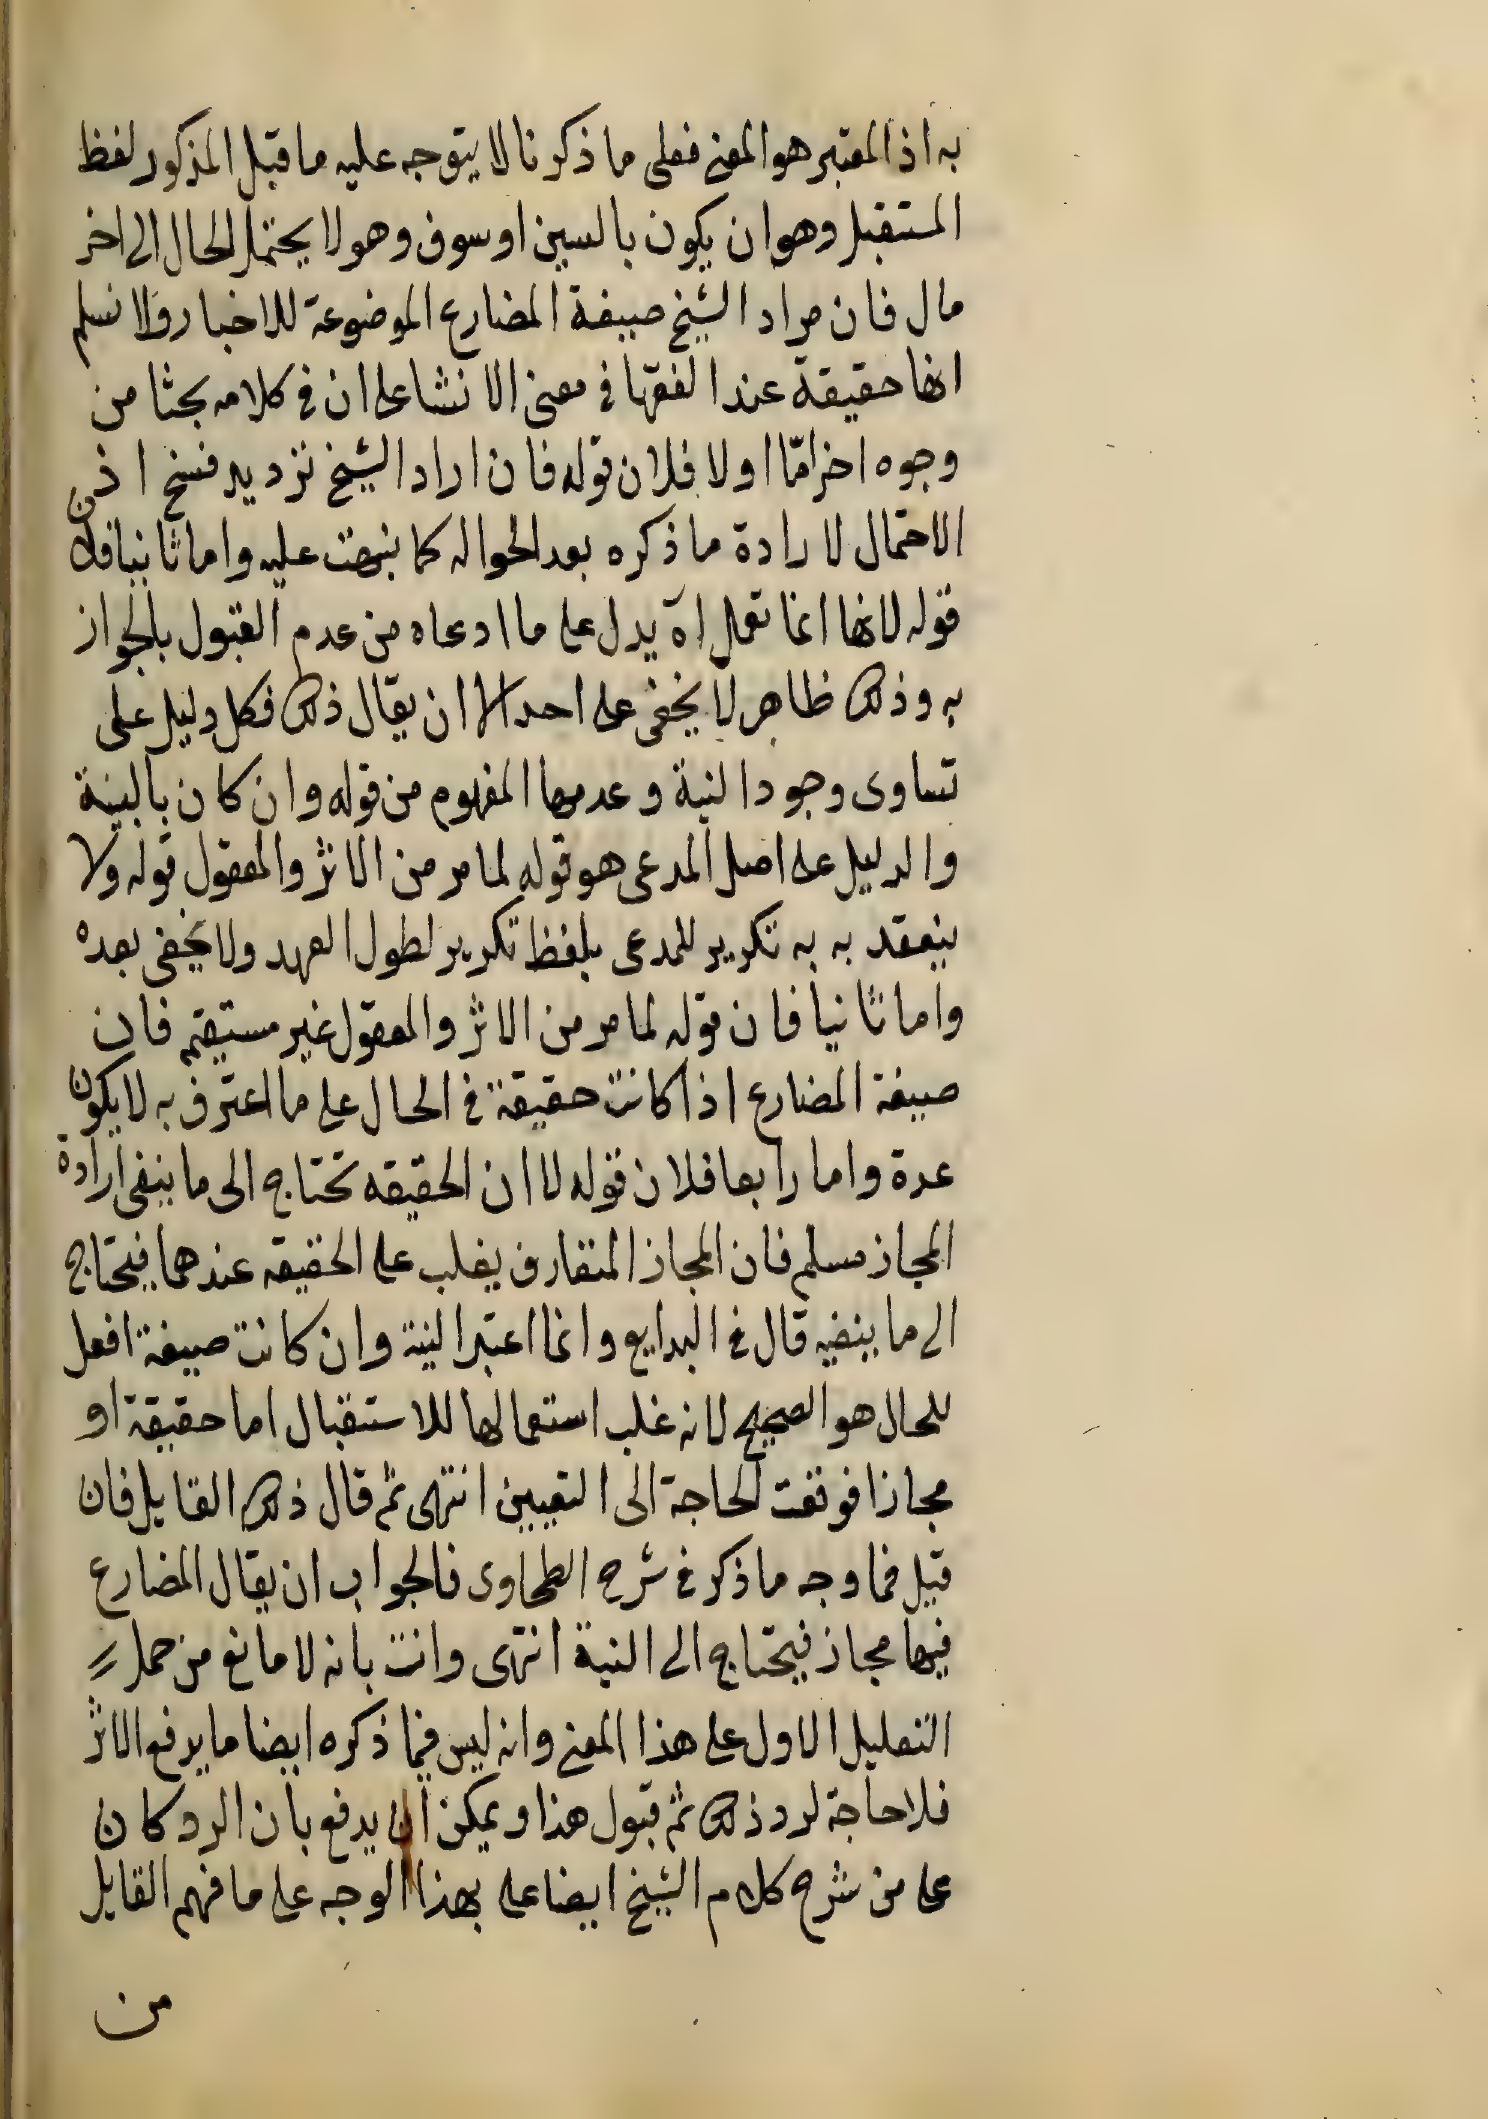 به اذ المعتبر هو المعنى فعلى ما ذكرنا لا يتوجه عليه ما قبل المذكور لفظ
المستقبل وهو ان يكون بالسين او سوف وهو لا يحتمل الحال الى اخر
ما ل فان مراد الشيخ صيغة المضارع الموضوعة للاخبار ولا نسلم
انها حقيقة عند الفقها في معنى الانشا على ان في كلامه بحثا من
وجوه اخر امّا اولا فلان قوله فان اراد الشيخ تزديد فسخ اذن
الاحتمال لا رادة ما ذكره بعد الحواله كما نبهت عليه واما ثانيا فلان
قوله لانها انما تعمل اه يدل على ما ادعاه من عدم القبول بالجواز
به وذلك ظاهر لا يخفى على احد الا ان يقال ذلك فكل دليل على
تساوى وجود النية وعدمها المفهوم من قوله وان كان بالبينة
والدليل على اصل المدعى هو قوله لما مر من الاثر والمعقول قوله ولا
ينعقد به به تكرير للمدعى بلفظ تكرير لطول العهد ولا يخفى بعده
واما ثانيا فان قوله لما مر من الاثر والمعقول غير مستقيم فان
صيغة المضارع اذا كانت حقيقة في الحال على ما اعترف به لا يكون
عدة واما رابعا فلان قوله لا ان الحقيقه تحتاج الى ما ينفى ارادة
المجاز مسلم فان المجاز المتعارف يغلب على الحقيقه عندهما فيحتاج
الى ما ينفيه قال في البدايع وانما اعتبر النية وان كانت صيغة افعل
للحال هو الصحيح لانه غلب استعمالها للاستقبال اما حقيقة او
مجازا فوقعت الحاجة الى التعيين انتهى ثم قال ذلك القايل فان
قيل فما وجه ما ذكر في شرح الطحاوى فالجواب ان يقال المضارع
فيها مجاز فيحتاج الى النية انتهى وانت بانه لا مانع من حمل
التعليل الاول على هذا المعنى وانه ليس فيما ذكره ايضا ما يرفع الاثر
فلا حاجة لرد ذلك ثم قبول هذا ويمكن ان يدفع بان الرد كان
على من شرح كلام الشيخ ايضا على بهذا الوجه على ما فهم القايل
من